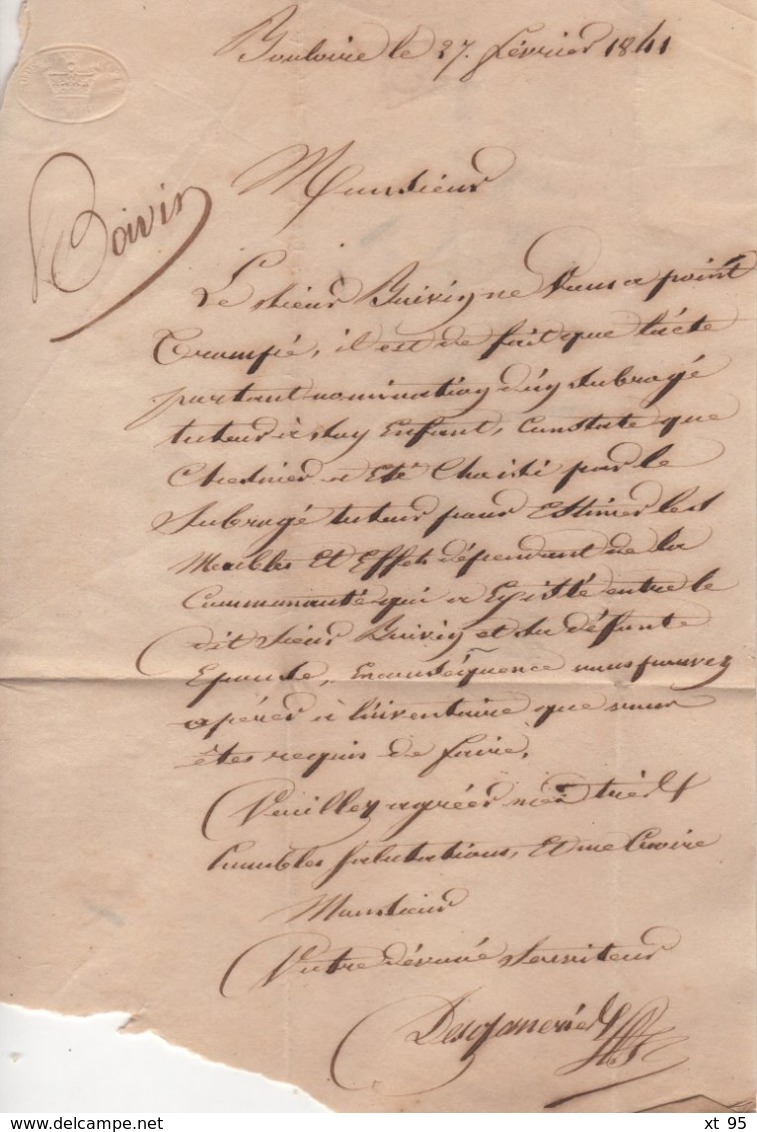 Bouloire le 27. février 1841
Monsieur
Boivin
Le sieur Boivin ne vous a point
Trompé, il est de fait que l'acte
portant nomination d'un subrogé
tuteur à son Enfant, Constate que
a Eté Choisi par le
Subrogé tuteur pour Estimer les
Meubles Et Effets dépendant de la
Communauté qui a Existé entre le
dit sieur Boivin et sa défunte
Epouse, En conséquence vous pouvez
opérer à l'inventaire que vous
êtes requis de faire.
Veuillez agréer mes très
humbles salutations, Et me Croire
Monsieur
Votre dévoué serviteur
xt 95